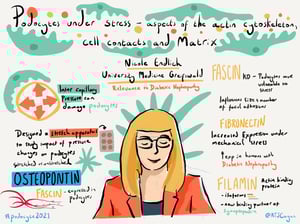 Podocytes under stress - aspects of the actin cytoskeleton,
cell contacts and Matrix
Nicole Endlich
University Medicine Greifswald
Relevance to Diabetic Nephropathy
Inter capillary
Pressure can
damage podocytes
Designed a stretch apparatus
to study impact of pressure
changes on podocytes
stretched vs unstretched
OSTEOPONTIN
FASCIN - expressed in
podocytes
#podocyte2021
FASCIN KO - Podocytes more
vulnerable to stress
Influences size & number
of focal adhesions
FIBRONECTIN
Increased Expression under
mechanical stress
↑exp in humans with
Diabetic Nephropathy
FILAMIN Actin binding
protein
- new binding partner of
Synaptopodin